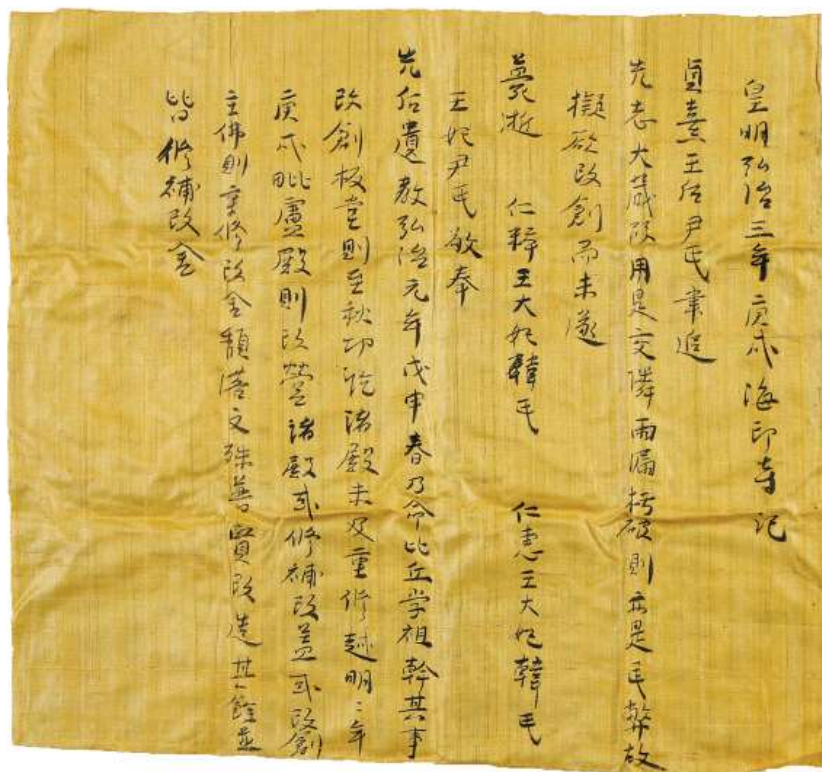 皇明弘治三年庚戌海印寺記
貞熹王后尹氏聿追
先志大藏段用是交隣雨漏朽破則亦是民弊故
擬欲改創而未遂
薨逝 仁粹王大妃韓氏 仁恵王大妃韓氏
王妃尹氏敬奉
先后遺教弘治元年戊申春乃命比丘学祖幹其事
改創板堂則至秋功訖諸殿未及重修越明〻年
庚戌毗盧殿則改營諸殿或修補改盖或改創
主佛則重修改金頹落文殊普賢改造其餘並
皆修補改金